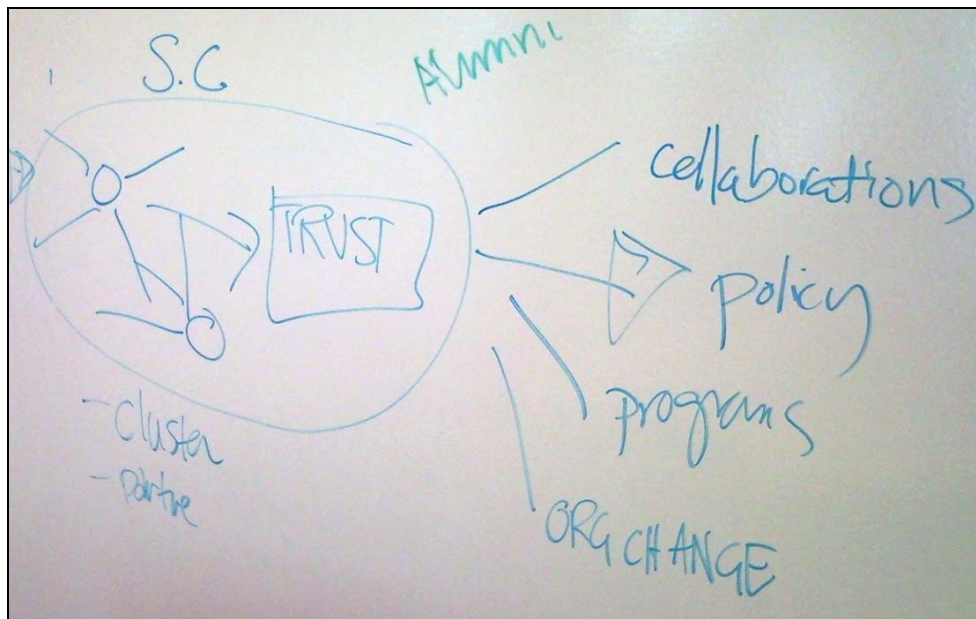 S.C
Alumni
TRUST
collaborations
policy
programs
ORG CHANGE
- Cluster
-